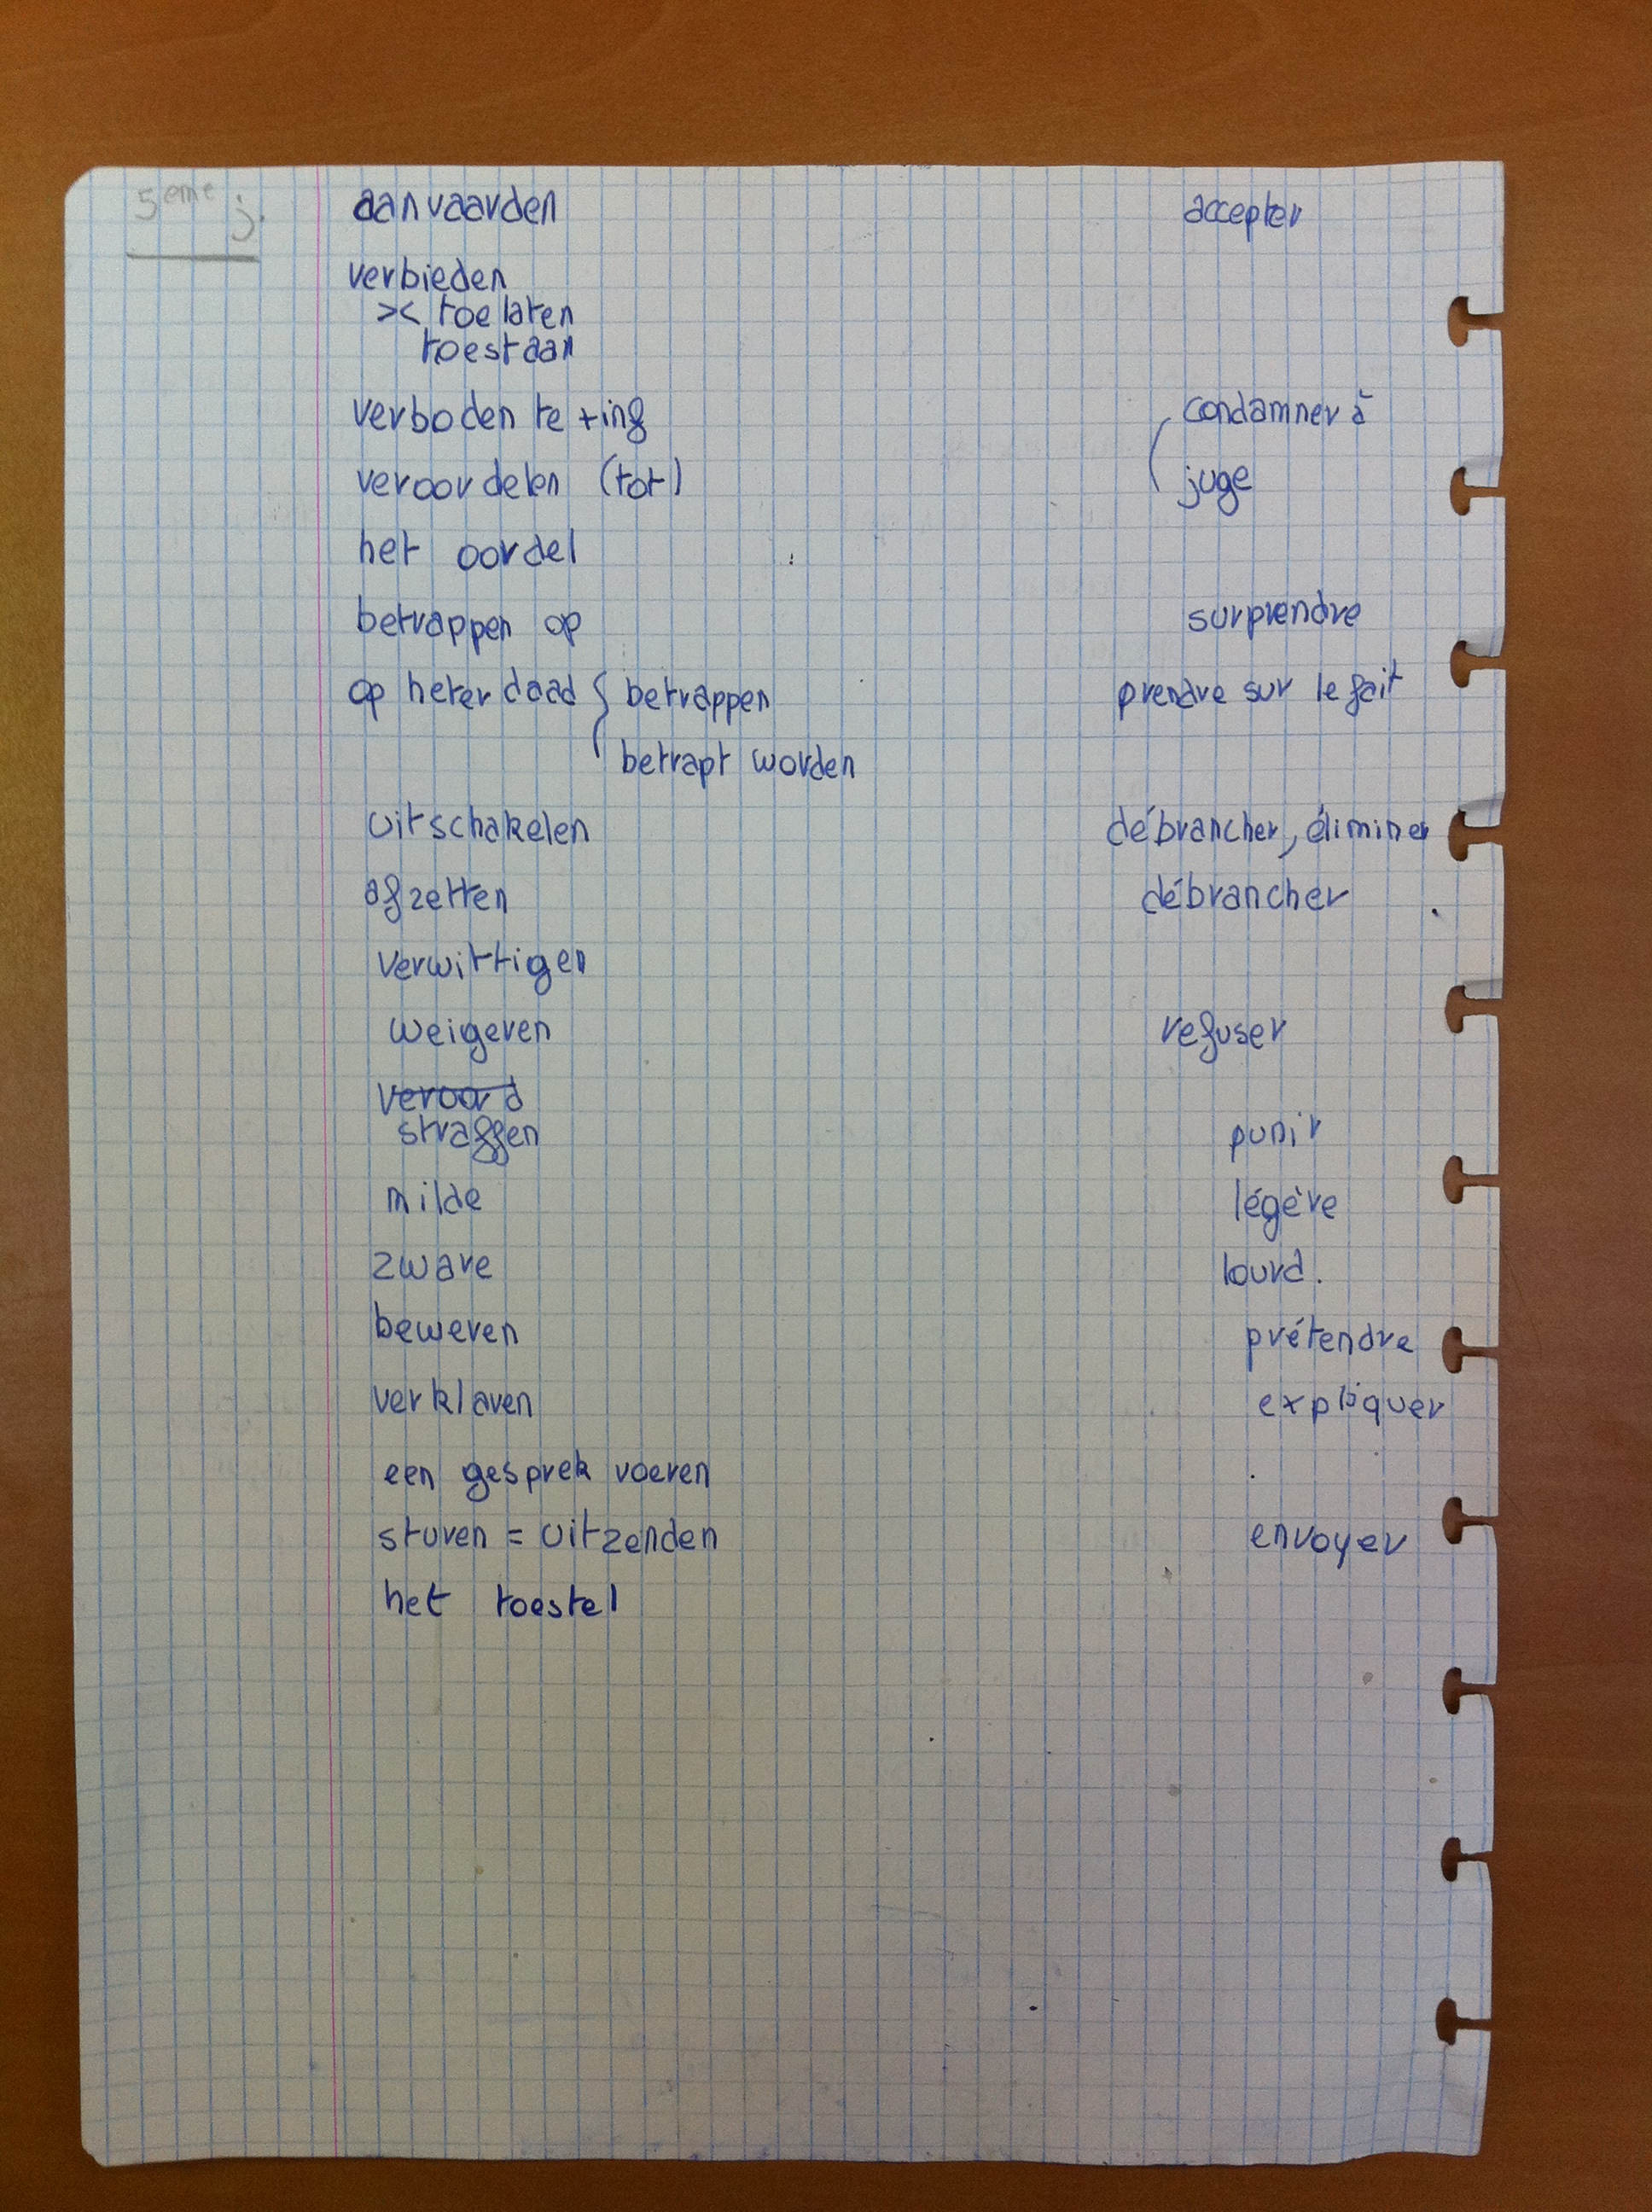 5eme j.
aanvaarden accepter
verbieden
>< toelaten
toestaan
verboden te + ing condamner à
veroordelen (tot) juge
het oordel
betrappen op surprendre
op heter daad { betrappen prendre sur le fait
betrapt worden
uitschakelen débrancher, éliminer
afzetten débrancher
verwittigen
weigeren refuser
veroord
straffen punir
milde légère
zware lourd.
beweren prétendre
verklaren expliquer
een gesprek voeren
sturen = uitzenden envoyer
het toestel